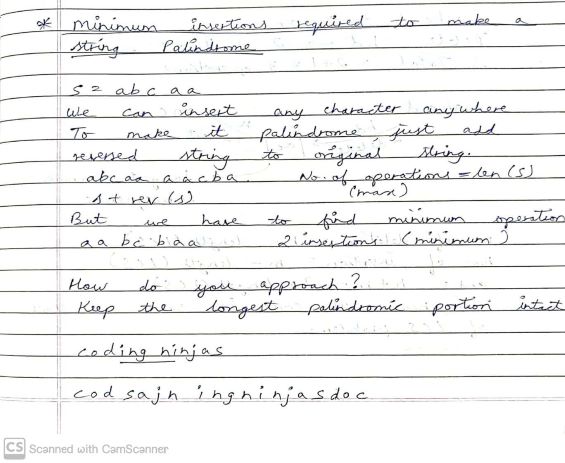 * Minimum insertions required to make a
string Palindrome
S = abcaa
We can insert any character anywhere
To make it palindrome, just add
reversed string to original string.
abcaa aacba. No. of operations = len(S)
s + rev(s) (max)
But we have to find minimum operation
aabcbaa 2 insertions (minimum)
How do you approach?
Keep the longest palindromic portion intact
coding ninjas
codsajn ingninjasdoc
CS Scanned with CamScanner